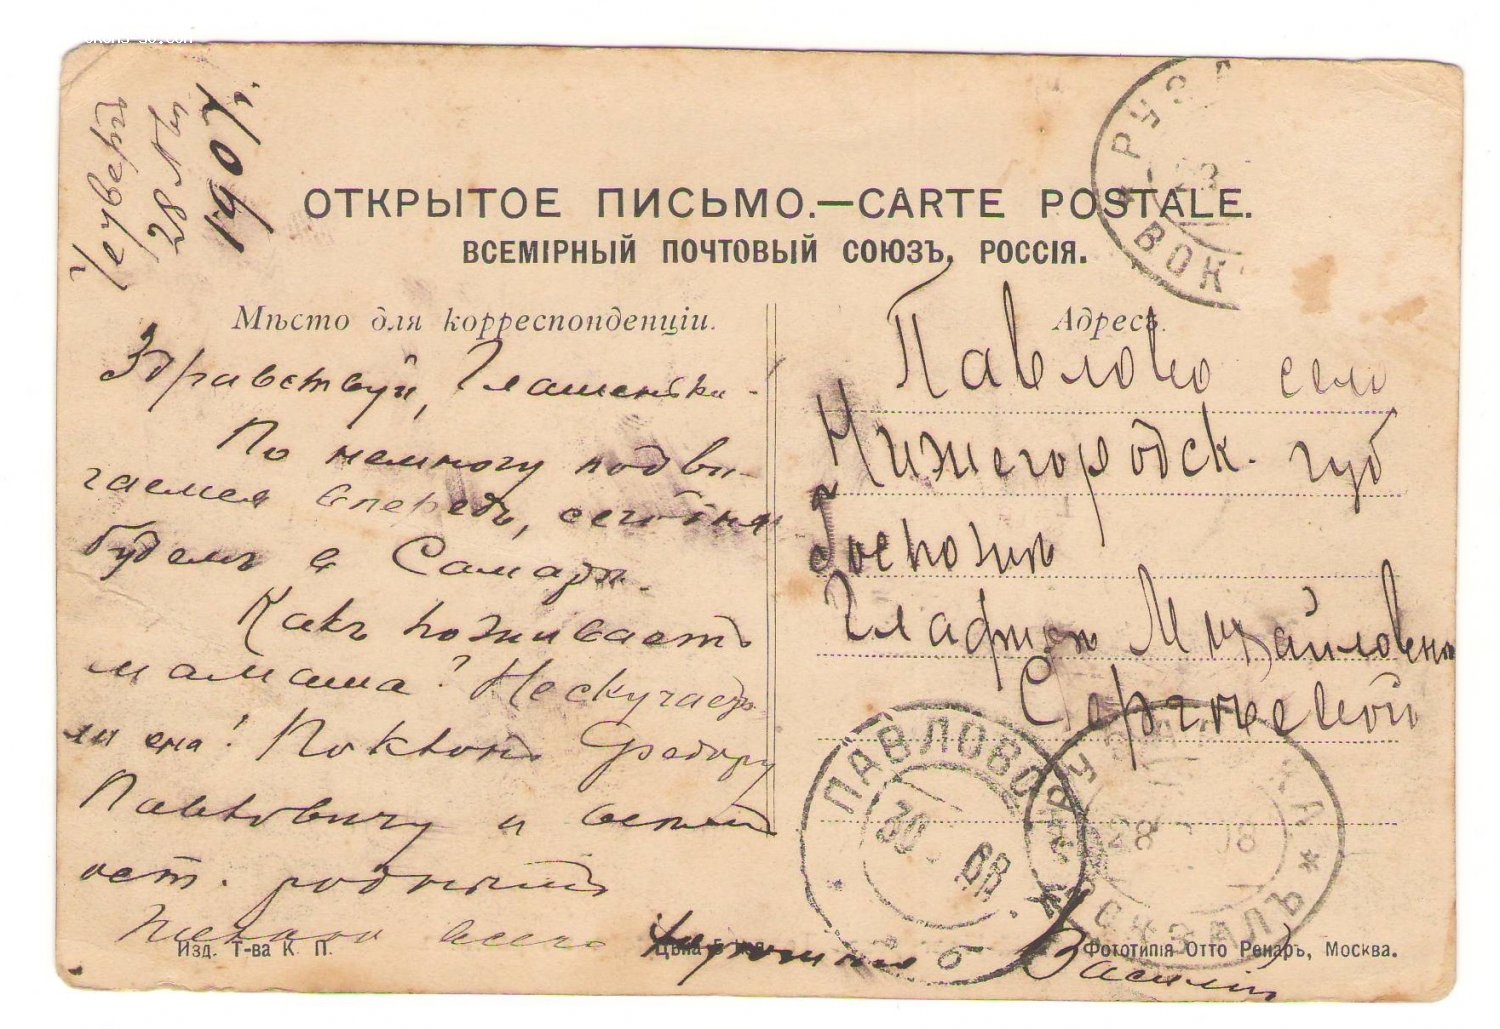 Четверг
28
190
ОТКРЫТОЕ ПИСЬМО.—CARTE POSTALE.
ВСЕМІРНЫЙ ПОЧТОВЫЙ СОЮЗЪ, РОССІЯ.
Мѣсто для корреспонденціи.
Здравствуй, Глашенька.
По немногу подви-
гаемся впередъ, сегодня
будемъ в Самарѣ.
Какъ поживаетъ
мамаша? Нескучаетъ
ли она? Поклонъ Федору
Павловичу и всѣмъ
ост. роднымъ
всего
Василій
Адресъ.
Павлово село
Нижегородск. губ
Госпожѣ
Глафирѣ Михайловнѣ
Сергѣевой
РУЗ
ВОК
ПАВЛОВО
30 08
28 08
ВОКЗАЛЪ
Изд. Т-ва К. П.
Фототипія Отто Ренаръ, Москва.